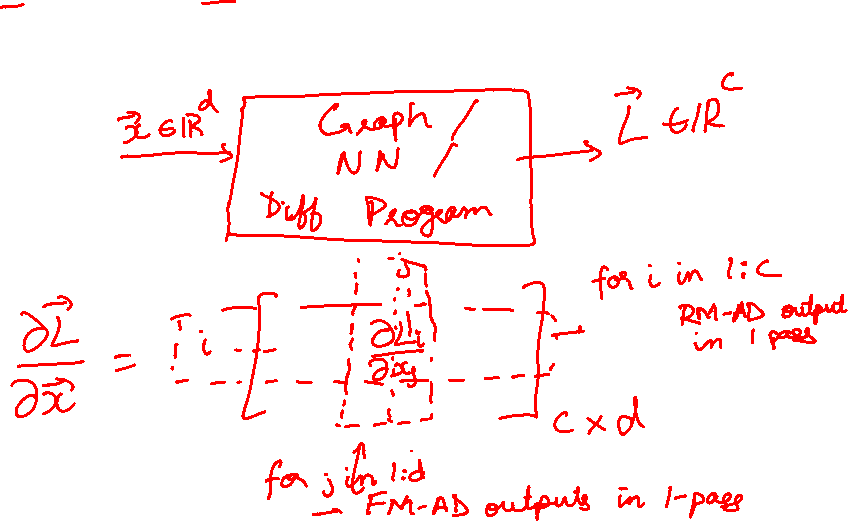 x⃗ ∈ ℝ^d
Graph /
NN /
Diff Program
L⃗ ∈ ℝ^C
∂L⃗/∂x⃗ = i [ ∂L_i/∂x_j ] C × d
j
for i in 1:C
RM-AD output
in 1 pass
for j in 1:d
– FM-AD outputs in 1-pass